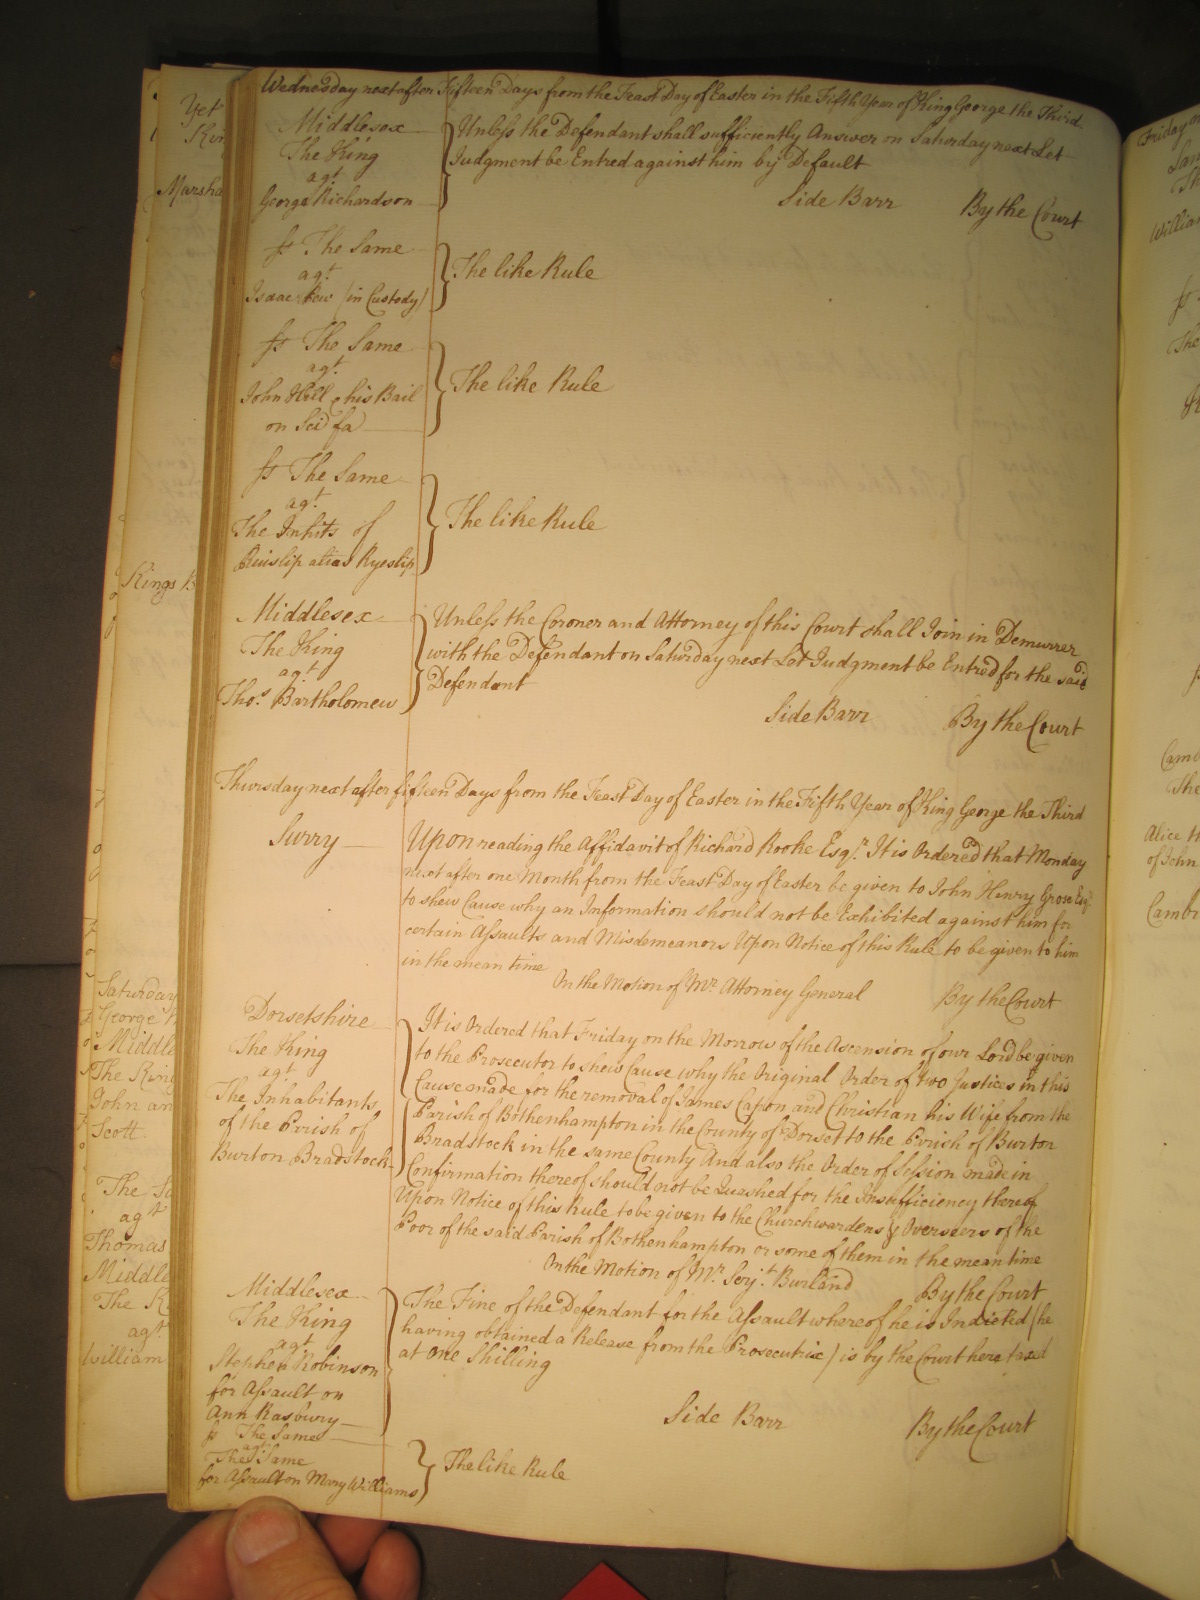 Wednesday next after Fifteen Days from the Feast Day of Easter in the Fifth Year of King George the Third
Middlesex
The King
agt
George Richardson
Unless the Defendant shall sufficiently Answer on Saturday next Let
Judgment be Entred against him by Default
Side Barr By the Court
ss The Same
agt.
Isaac (in Custody)
The like Rule
ss The Same
agt.
John Hill & his Bail
on Sci fa
The like Rule
ss The Same
agt.
The Inhits of
Ruislip alias Ryeslip
The like Rule
Middlesex
The King
agt.
Thos. Bartholomew
Unless the Coroner and Attorney of this Court shall Join in Demurrer
with the Defendant on Saturday next Let Judgment be Entred for the said
Defendant
Side Barr By the Court
Thursday next after fifteen Days from the Feast Day of Easter in the Fifth Year of King George the Third
Surry
Upon reading the Affidavit of Richard Rooke Esqr. It is Ordered that Monday
next after one Month from the Feast Day of Easter be given to John Henry Grose Esqr
to shew Cause why an Information should not be Exhibited against him for
certain Assaults and Misdemeanors Upon Notice of this Rule to be given to him
in the mean time
On the Motion of Mr. Attorney General By the Court
Dorsetshire
The King
agt
The Inhabitants
of the Parish of
Burton Bradstock
It is Ordered that Friday on the Morrow of the Ascension of our Lord be given
to the Prosecutor to shew Cause why the Original Order of two Justices in this
Cause made for the removal of James Capon and Christian his Wife from the
Parish of Bothenhampton in the County of Dorset to the Parish of Burton
Bradstock in the same County And also the Order of Session made in
Confirmation thereof should not be Quashed for the Insufficiency thereof
Upon Notice of this Rule to be given to the Churchwardens & Overseers of the
Poor of the said Parish of Bothenhampton or some of them in the mean time
On the Motion of Mr. Serjt. Burland By the Court
Middlesex
The King
agt
Stephen Robinson
for Assault on
Ann Rasbury
The Fine of the Defendant for the Assault whereof he is Indicted (he
having obtained a Release from the Prosecutrix) is by the Court here taxed
at One Shilling
Side Barr By the Court
ss The Same
agt
The Same
for Assault on Mary Williams
The like Rule
Saturday
George
Middle
The King
John an
Scott.
agt
Thomas
Middle
The K
agt.
William
Kings B
Marsha
Yet
Friday
William
The
Alice
of John